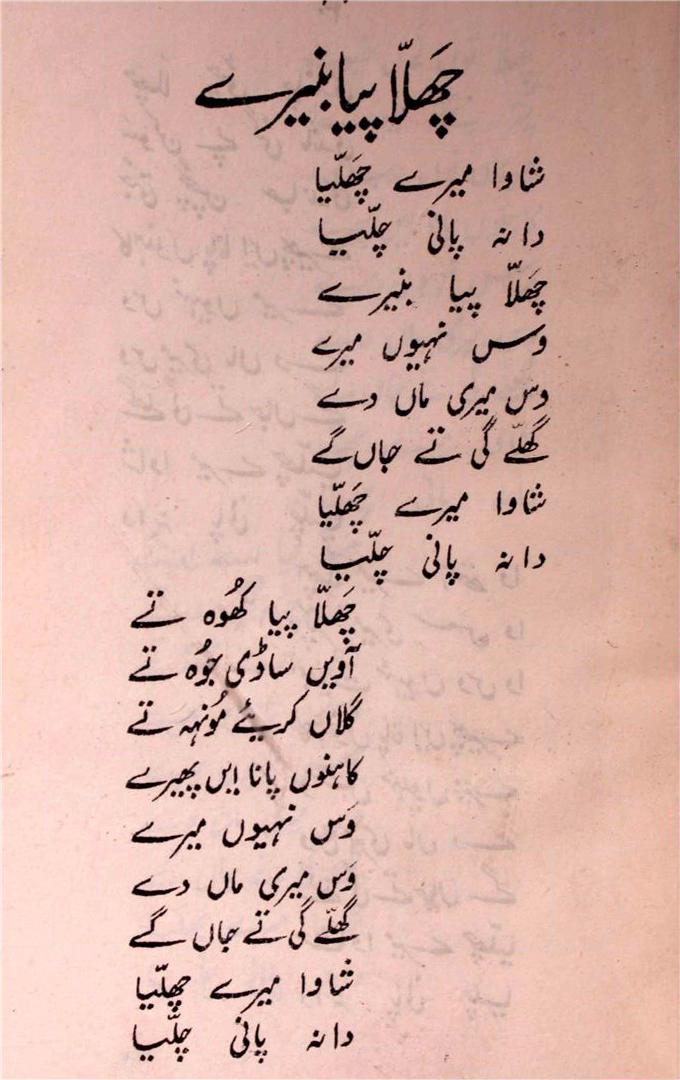 چَھلّا پیا بنیرے
شاوا میرے چَھلّیا
دانہ پانی چلّیا
چَھلّا پیا بنیرے
وس نہیوں میرے
وس میری ماں دے
گھلّے گی تے جاں گے
شاوا میرے چَھلّیا
دانہ پانی چلّیا
چَھلّا پیا کھُوہ تے
آویں ساڈی جُوہ تے
گلاں کریئے مُونہہ تے
کاہنوں پانا ایں پھیرے
وَس نہیوں میرے
وَس میری ماں دے
گھلّے گی تے جاں گے
شاوا میرے چھلّیا
دانہ پانی چلّیا